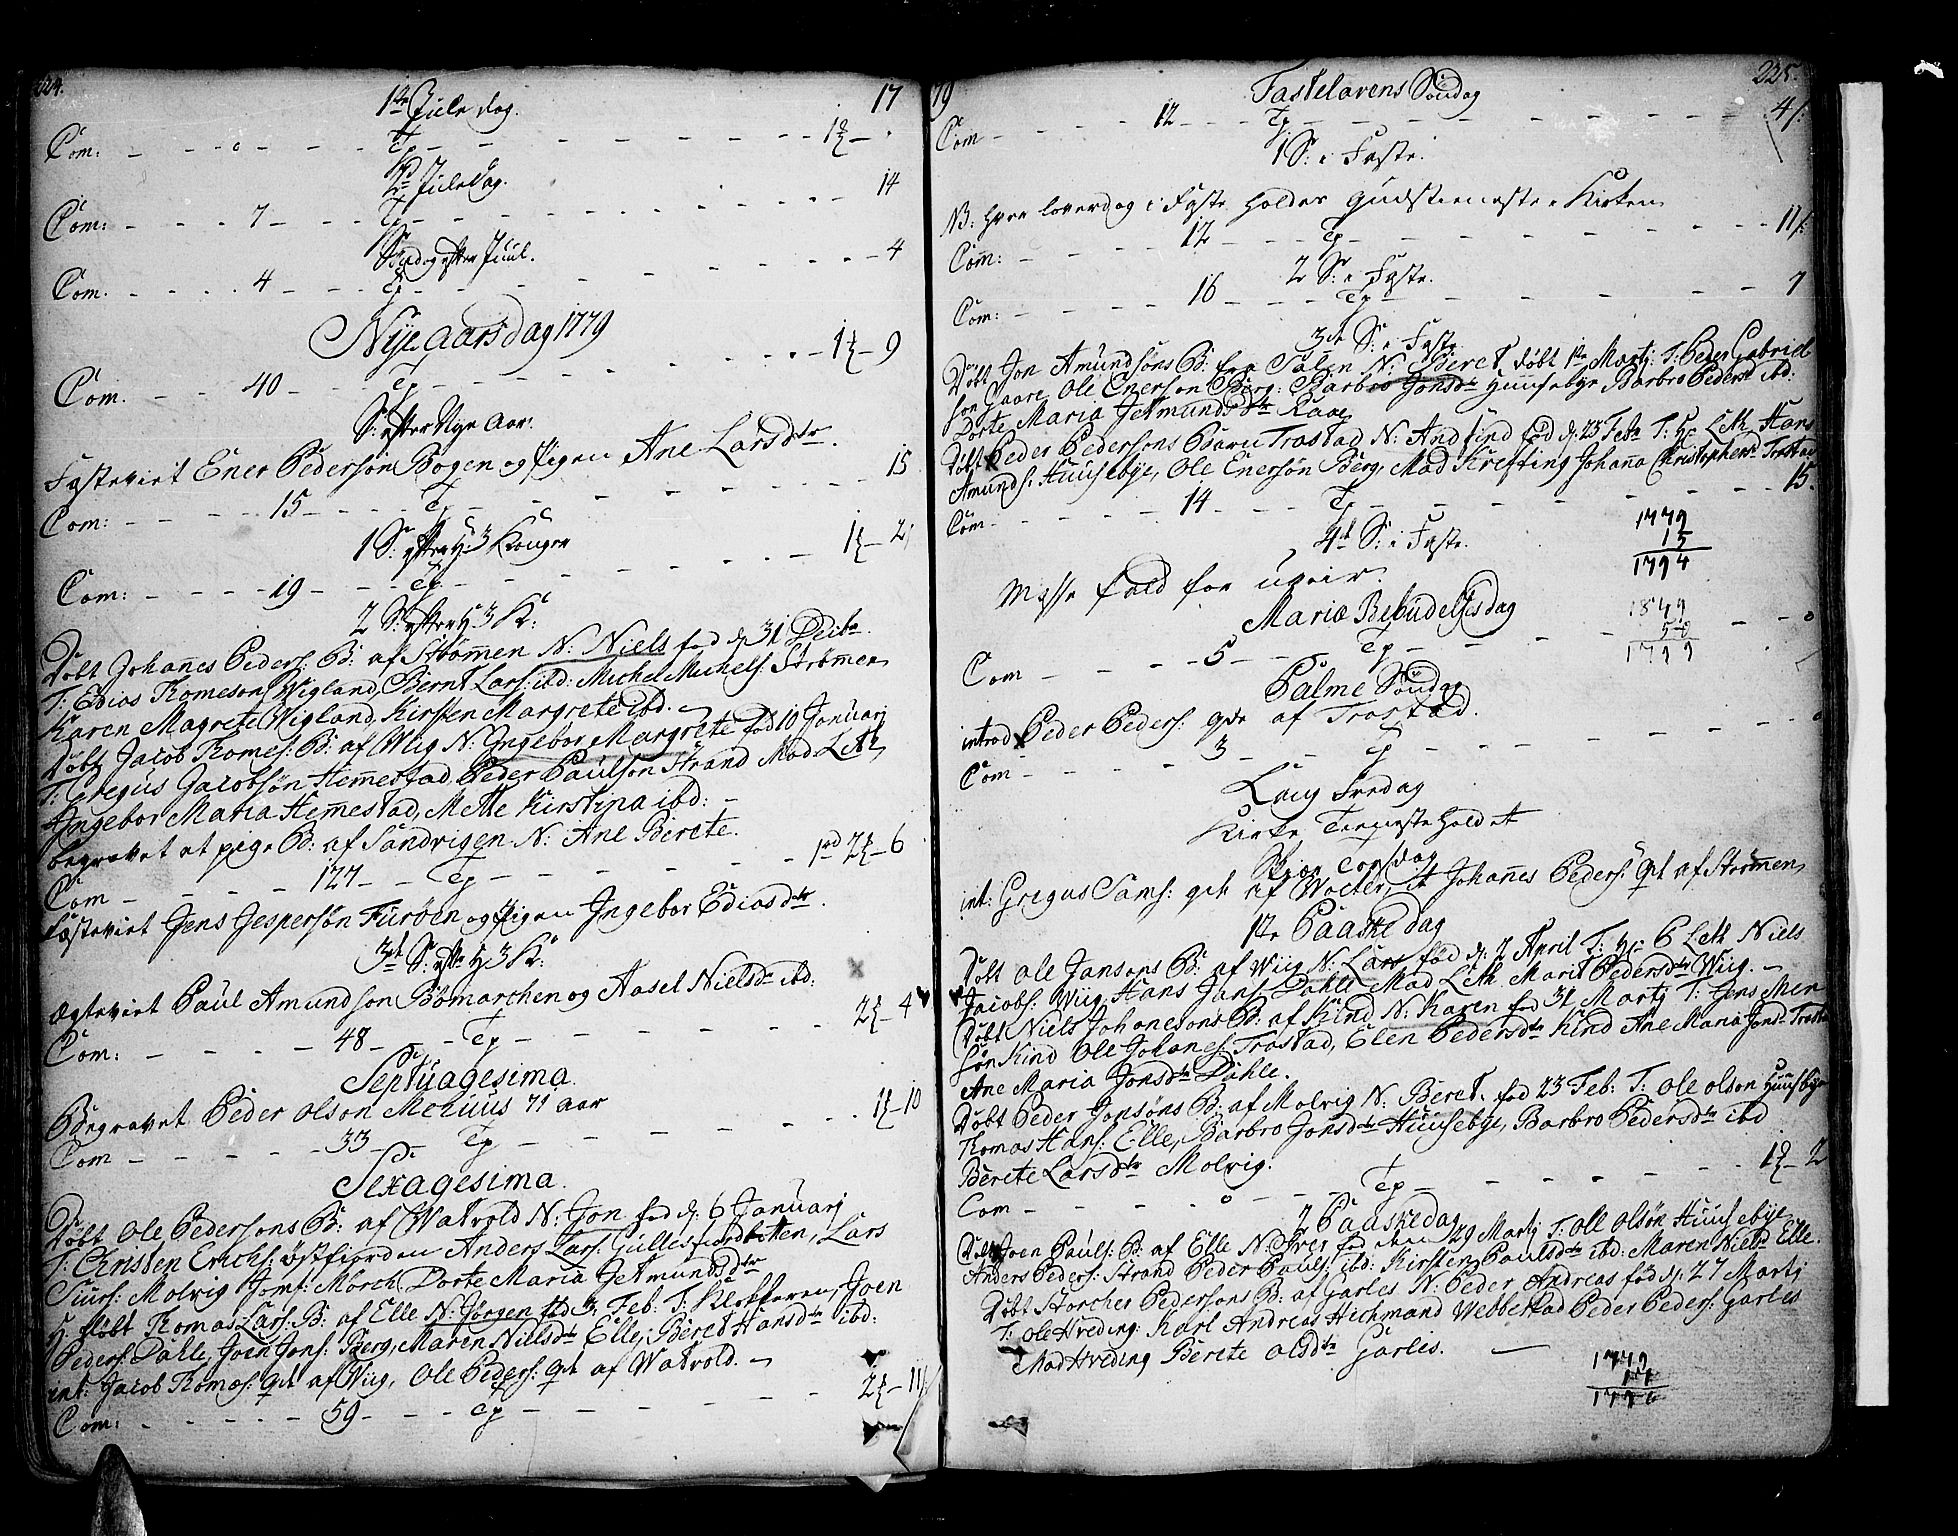 224.
1te Jule dag. 17
Com: - - - o - - Tp - - - - 1ƺ - .
2d Jule Dag. 14
Com: - - - 7 - - Tp - - -
S: efter Juul. - 4
Com. - - - 4 - - Tp - - -
Nye aars dag 1779
Com. - - 40 - - - Tp - - - 1ƺ - 9
S: efter Nye Aar.
Fæstevirt Ener Pedersøn Bogen og Pigen Ane Larsdtr. 15
Com: - - - 15 - - - Tp - - -
1 S: efter H 3 Konger
Com: - - - 19 - - - Tp - - - 1ƺ - 2
2 S: efter H 3 K:
Døbt Johañes Peders: B: af Strømen N: Niels fød d. 31 Decbr.
T: Edias Tomeson Wigland, Bernt Lars: ibd: Michel Michels: Strømen
Karen Magrete Wigland, Kirsten Margrete ibd. -
Døbt Jacob Tomes: B: af Wiig N: Ingebor Margrete fød 10 Januarj
T: Gregus Jacobsøn Hemestad, Peder Paulson Strand Mad Leth
Ingebor Maria Hemestad, Mette Kirstina ibd: -
begravet et pige B: af Sandvigen N: Ane Berete.
Com - - - 127 - - Tp - - - 1rd 2ƺ - 6
Fæstevirt Jens Jespersøn Furøen og Pigen Ingebor Ediasdtr.
3d S: efter H 3 K:
Ægtevirt Paul Amundson Bømarchen og Aasel Nielsdtr ibd:
Com: - - - 48 - - - Tp - - - 2ƺ - 4
Septuagesima.
Begravet Peder Olson Meruus 71 aar
Com - - - 33 - - - Tp - - - 1ƺ - 10
Sexagesima.
Døbt Ole Pedersons B: af Watvold N: Jon fød d. 6 Januarj
T: Christen Erichs: Østfjorden Anders Lars: Gullesfiordbotten, Lars
Siurs: Molvig Jomf: Mørch Dorte Maria Jetmundsdtr
H: døbt Tomas Lars: B: af Elle N: Jørgen fød 3 Feb: T: Klokkeren, Joen
Peders: Dahle, Joen Jons: Berg, Maren Nielsdtr Elle, Beret Hansdtr ibd:
int: Jacob Tomæs: Qvi af Wiig, Ole Peders: Qvi af Watvold. -
Com: - - - 59 - - - Tp - - - 2ƺ - 11
79 225.
Fastelavens Søndag
Com - - - 12 - - - Tp - - - 4/:
1 S: i Faste.
N3: hver loverdag i Faste holdes gudstieneste i Kirken
Com: - - - 12 - - - Tp - - - 11/:
2 S: i Faste.
Com: - - - 16 - - - Tp - - - 7
3de S: i Faste
Døbt Jon Amundsøns B: fra Salen N: Beret, født 1te Martj: T: Peder Gabriel
son Gaare, Ole Enerson Berg: Barbro Jonsdtr Huusebye Barbro Pedersd ibd:
Dorte Maria Jetmundsdtr Raae
Døbt Peder Pedersons Barn Trastad N: Andfind fød d: 23 Febr T: Hr Leth, Hans
Amunds: Huusebye, Ole Enersøn Berg, Mad Krefting Johaña Christophersd Trastad
Com - - - 14 - - - Tp - - - 15.
4d S: i Faste.
1779
15
1794
Messe fald for uveir.
Mariæ Bebudelses dag
1849
50
1799
Com - - - 5 - - - Tp - - - o
Palme Søndag
introd Peder Peders: qde af Trastad.
Com - - - 3 - - - Tp - - - o
Lang Fredag
Kirke Teeneste holdet
Skjær Torsdag
int: Gregus Sams: qvi af Wolter, it Johañes Peders: Qvi af Strømen
1te Paaske dag
Døbt Ole Jansons B: af Wiig N: Lars fød d: 2 April T: Hr: P Leth Niels
Jacobs: Wiig, Hans Jans: Dahle Mad Leth Marit Pedersdtr Wiig. -
Døbt Niels Johanesons B: af Kind N: Karen fød 31 Martj T: Jens Mon
søn Kind Ole Johanes: Trastad, Elen Pedersdtr Kind Ane Maria Jonsd Trastad
Ane Maria Jonsdtr Dahle.
Døbt Peder Jonsøns B: af Molvig N: Beret. fød 23 Feb: T: Ole Olson Huusebye
Tomas Hans: Elle, Barbro Jonsdtr Huusebye, Barbro Pedersdtr ibd
Berete Larsdtr Molvig.
Com - - - o - - - Tp - - - 1ƺ - 2
2 Paaskedag
Døbt Joen Pauls: B: af Elle N: Iver fød den 29 Martj T: Ole Olsøn Huusebye
Anders Peders: Strand Peder Pauls: ibd: Kirsten Paulsdtr ibd: Maren Nielsd Elle.
Døbt Storcher Pedersons B: af Garles N: Peder Andreas fød d. 27 Martj
T: Ole Hveding Karl Andreas Hichmand Webbestad Peder Peders: Garles
Mad Hveding Berete Olsdtr Garles. -
1779
17
1796